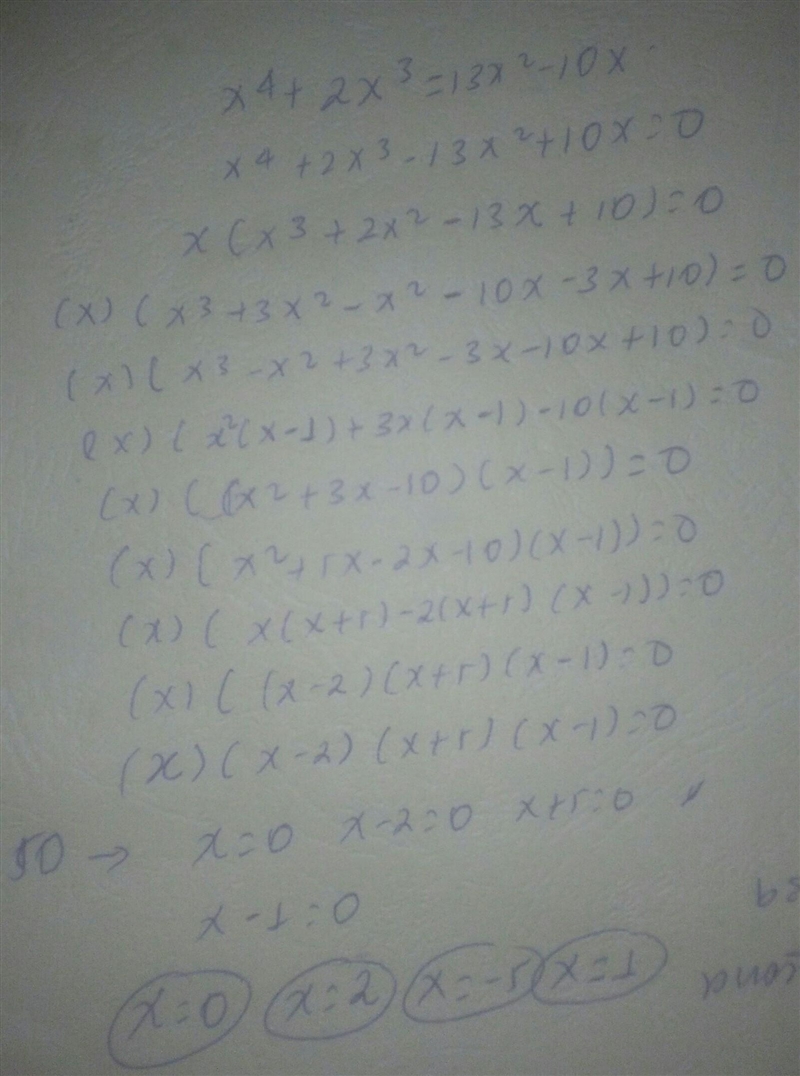 x⁴ + 2x³ = 13x² - 10x
x⁴ + 2x³ - 13x² + 10x = 0
x (x³ + 2x² - 13x + 10) = 0
(x) (x³ + 3x² - x² - 10x - 3x + 10) = 0
(x) (x³ - x² + 3x² - 3x - 10x + 10) = 0
(x) (x²(x-1) + 3x(x-1) - 10(x-1) = 0
(x) ((x² + 3x - 10) (x-1)) = 0
(x) (x² + 5x - 2x - 10)(x-1)) = 0
(x) (x(x+5) - 2(x+5) (x-1)) = 0
(x) ((x-2)(x+5)(x-1) = 0
(x)(x-2)(x+5)(x-1) = 0
so → x=0 x-2=0 x+5=0
x-1=0
x=0 x=2 x=-5 x=1